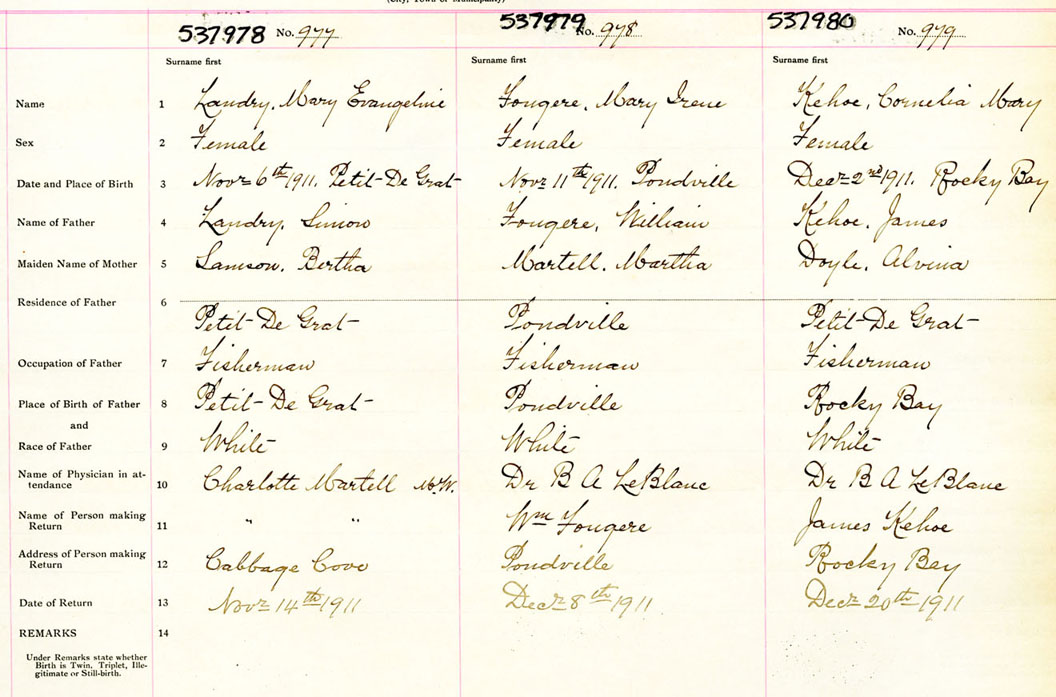 (City, Town or Municipality)
537978 No. 977 537979 No. 978 537980 No. 979
Surname first Surname first Surname first
Name 1 Landry, Mary Evangeline Fougere, Mary Irene Kehoe, Cornelia Mary
Sex 2 Female Female Female
Date and Place of Birth 3 Novr 6th 1911. Petit-De Grat Novr 11th 1911. Pondville Decr 2nd 1911. Rocky Bay
Name of Father 4 Landry, Simon Fougere, William Kehoe, James
Maiden Name of Mother 5 Samson, Bertha Martell, Martha Doyle, Alvina
Residence of Father 6
Petit-De Grat Pondville Petit-De Grat
Occupation of Father 7 Fisherman Fisherman Fisherman
Place of Birth of Father 8 Petit-De Grat Pondville Rocky Bay
and
Race of Father 9 White White White
Name of Physician in at-
tendance 10 Charlotte Martell M.W. Dr B A LeBlanc Dr B A LeBlanc
Name of Person making
Return 11 " " Wm Fougere James Kehoe
Address of Person making
Return 12 Cabbage Cove Pondville Rocky Bay
Date of Return 13 Novr 14th 1911 Decr 8th 1911 Decr 20th 1911
REMARKS 14
Under Remarks state whether
Birth is Twin, Triplet, Ille-
gitimate or Still-birth.